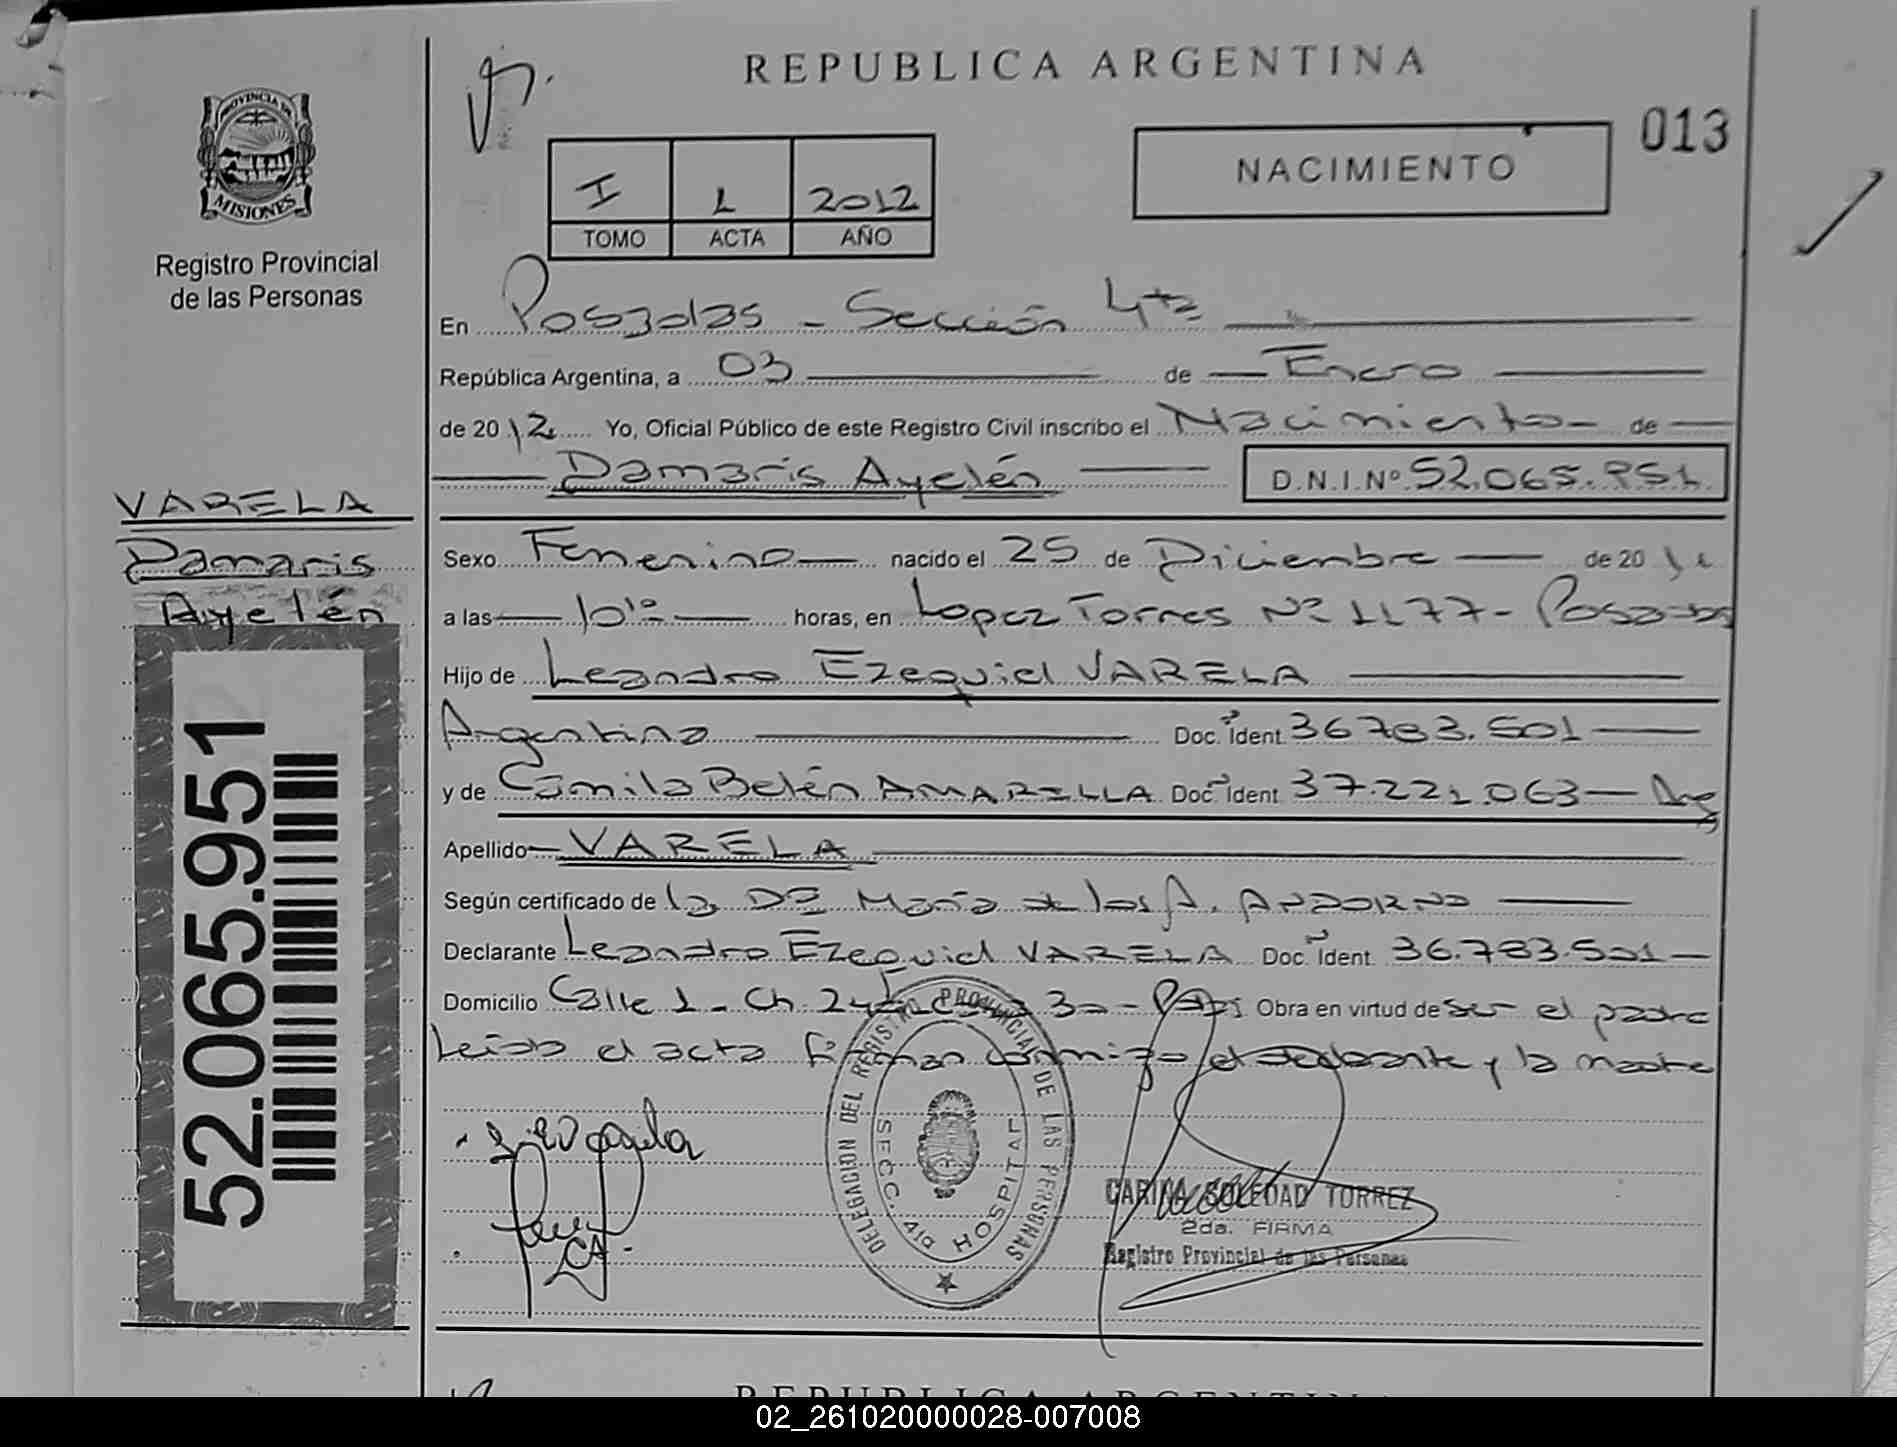 REPUBLICA ARGENTINA
013
NACIMIENTO
I 1 2012
TOMO ACTA AÑO
PROVINCIA DE
MISIONES
Registro Provincial
de las Personas
VARELA
Damaris
Ayelén
52.065.951
En Posadas - Sección 4ta
República Argentina, a 03 de Enero
de 2012 Yo, Oficial Público de este Registro Civil inscribo el Nacimiento de
Damaris Ayelén D.N.I.Nº 52.065.951
Sexo Femenino nacido el 25 de Diciembre de 2011
a las 10 horas, en Lopez Torres Nº 1177 - Posadas
Hijo de Leandro Ezequiel VARELA
Argentina Doc. Ident. 36783.501
y de Camila Belén AMARILLA Doc. Ident. 37.221.063 - Arg
Apellido VARELA
Según certificado de la Dra María de los A. ANDORNO
Declarante Leandro Ezequiel VARELA Doc. Ident. 36.783.501
Domicilio Calle 1 - Ch. Obra en virtud de ser el padre
Leida el acta firman conmigo el declarante y la madre
DELEGACION DEL REGISTRO PROVINCIAL DE LAS PERSONAS
SECC. 4ta HOSPITAL
CARINA SOLEDAD TORREZ
2da. FIRMA
Registro Provincial de las Personas
REPUBLICA ARGENTINA
02_261020000028-007008